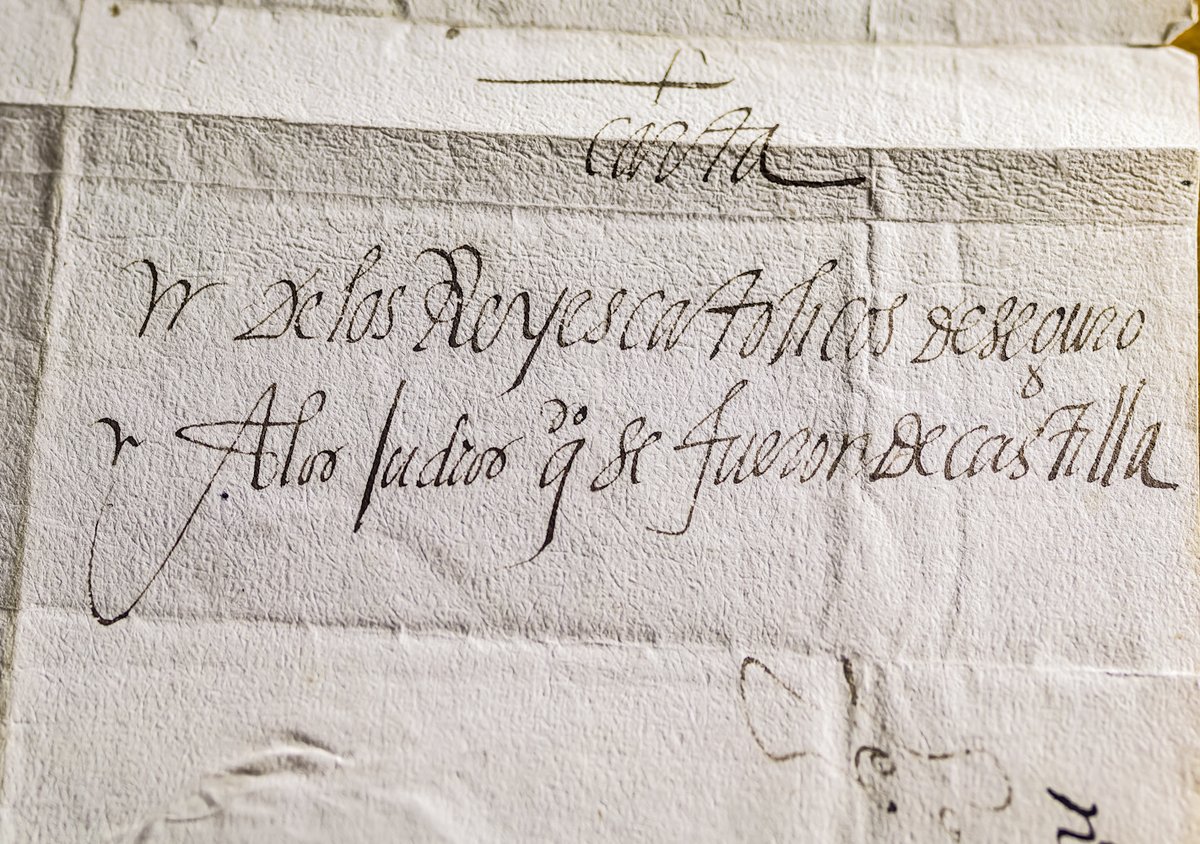 carta
De los Reyes catolicos de seguro
A los Judios q se fueron de castilla